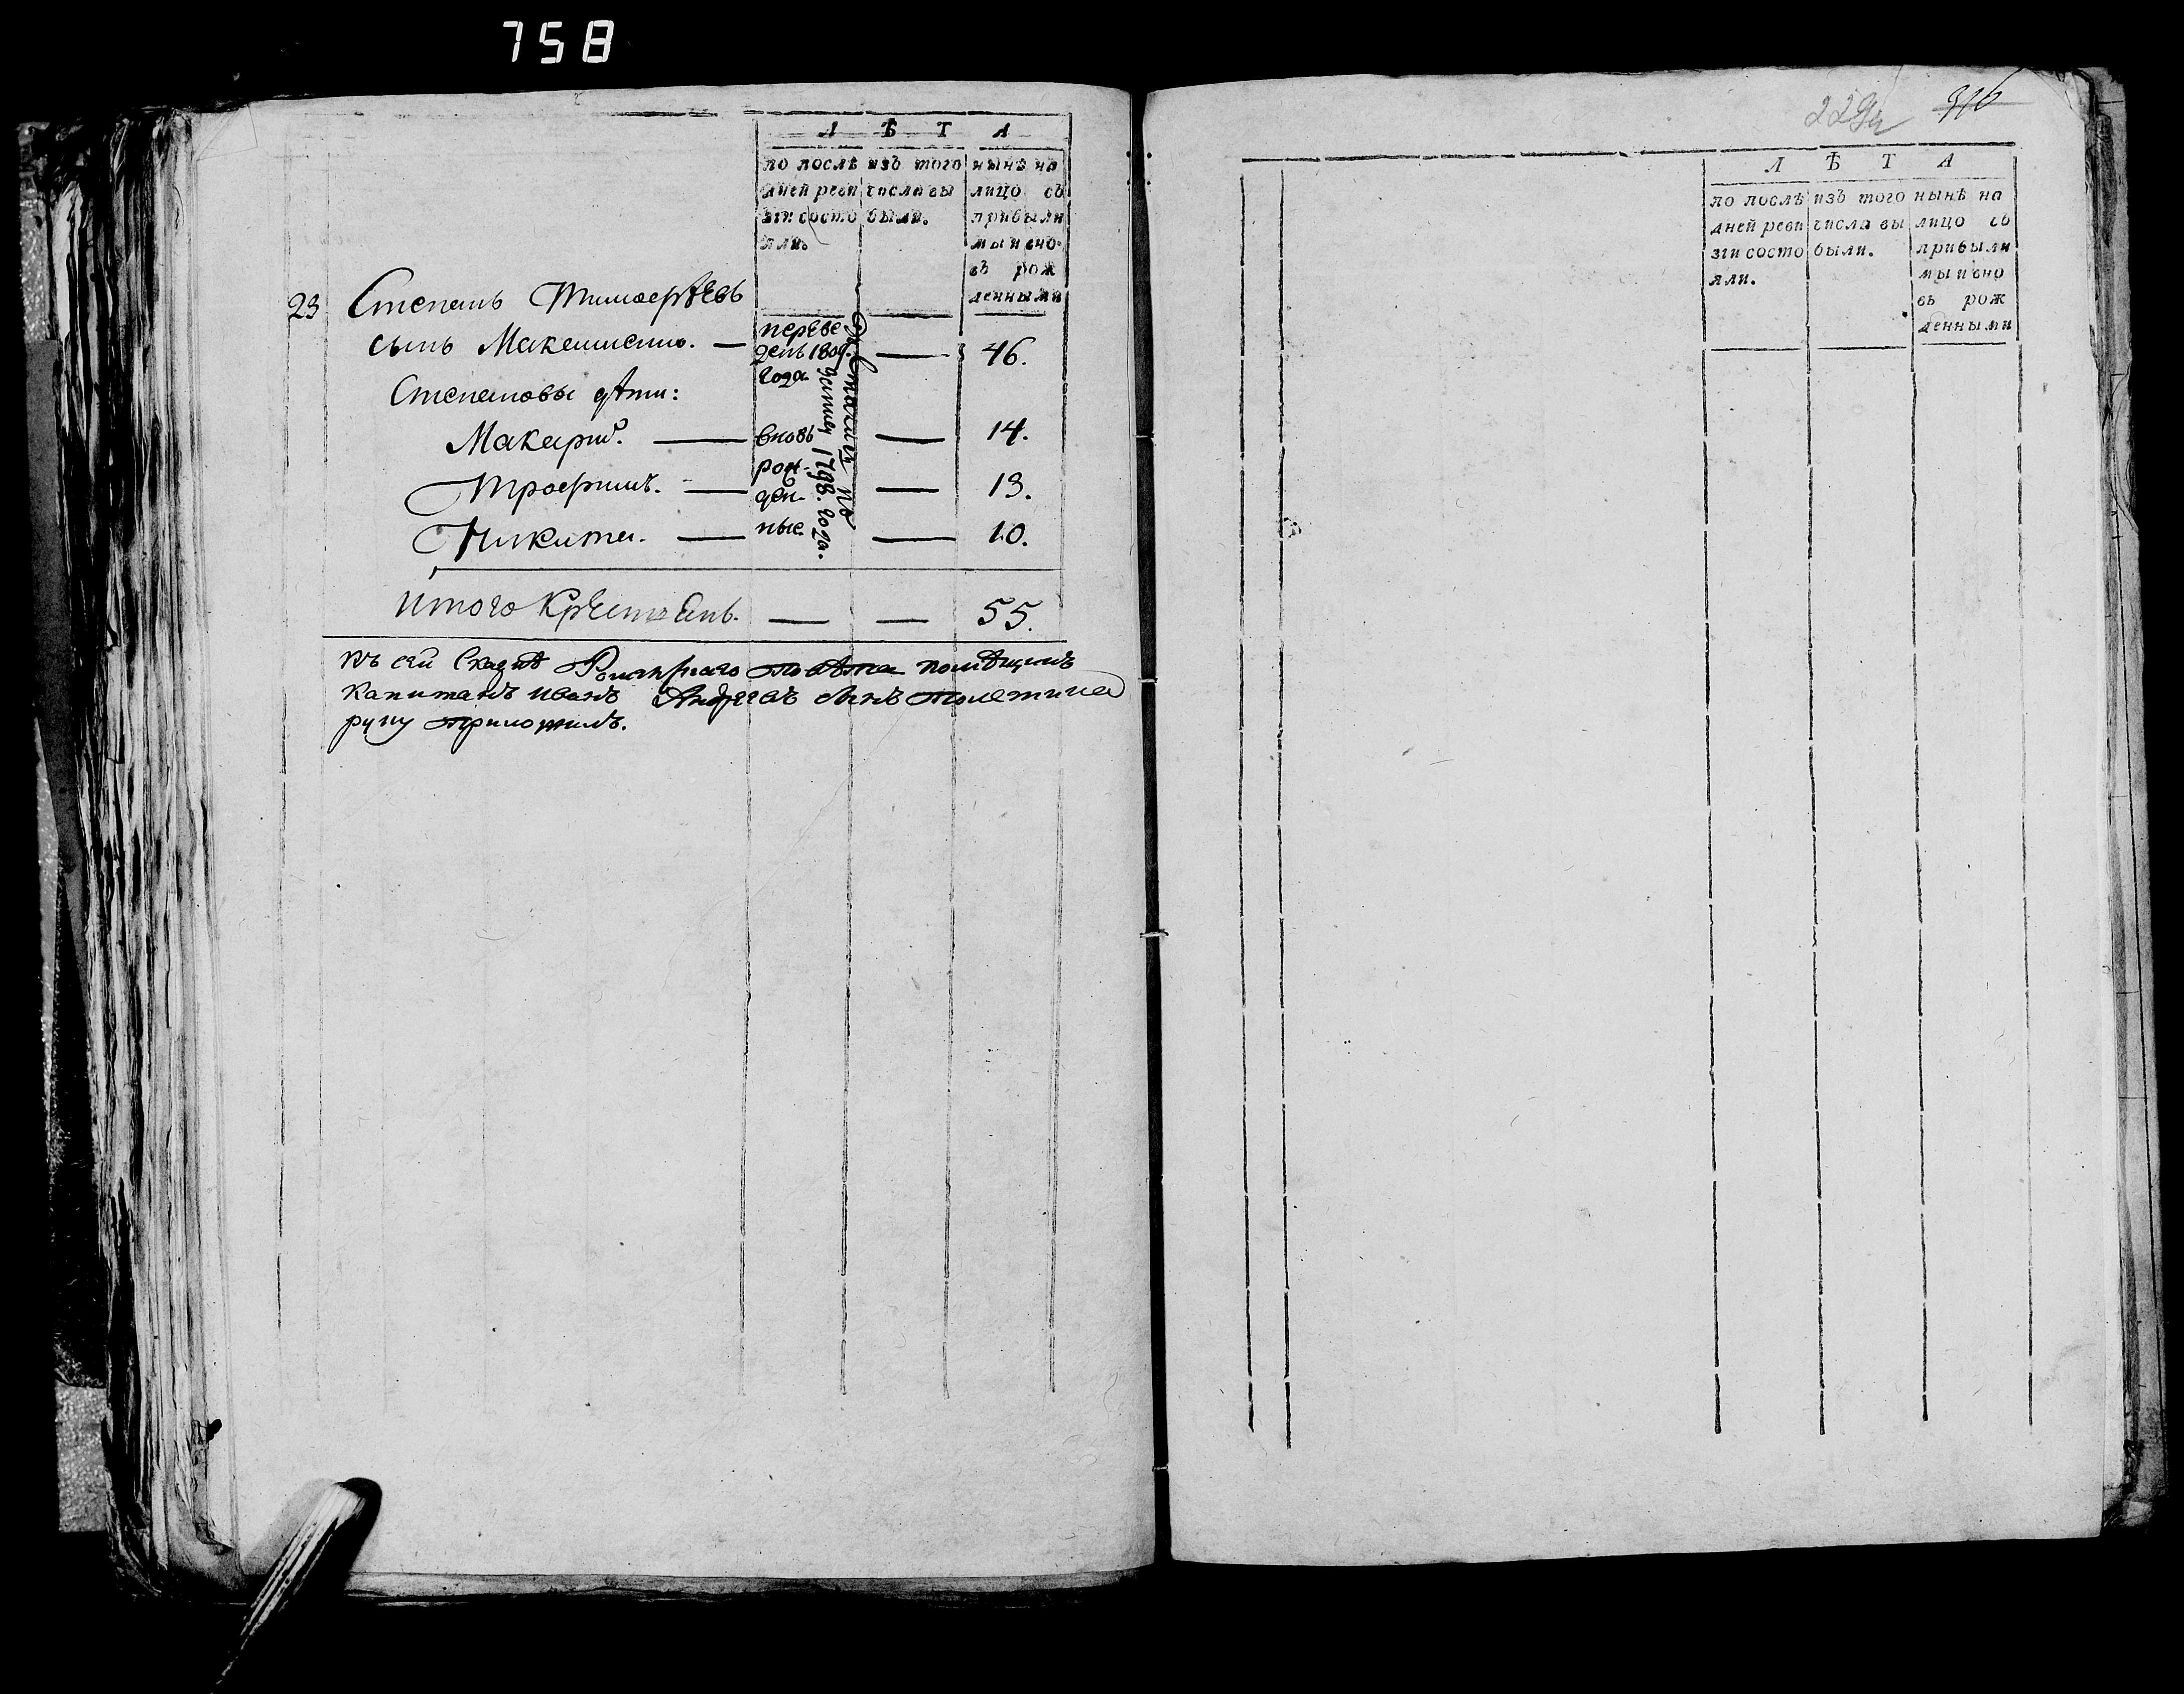 758
Л Ѣ Т А
по послѣ дней реви зіи состо яли.
изъ того числа вы были.
нынѣ на лицо съ прибыли ми и вно въ рож денными
23 Степанъ Тимоеѣевъ
сынъ — переве денъ 180 года — 46.
Степановы дѣти:
Макарій. — вновь — 14.
Трофимъ. — рож- ден- — 13.
Никита. — ные. — 10.
1798. года.
Итого Крестьянъ. — — 55.
Къ сей Сказкѣ повѣта помѣщикъ
Капитанъ Иванъ Андреевъ сынъ
руку приложилъ.
316
Л Ѣ Т А
по послѣ дней реви зіи состо яли.
изъ того числа вы были.
нынѣ на лицо съ прибыли ми и вно въ рож денными